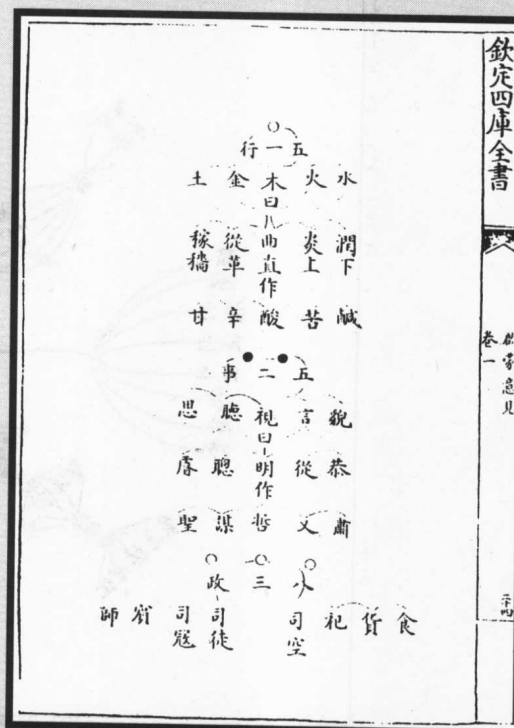 欽定四庫全書
啟蒙意見
卷一
五一行
水火木金土
曰
潤下 炎上 曲直 從革 稼穡
作
鹹苦酸辛甘
五二事
貌言視聽思
曰
恭從明聰睿
作
肅乂哲謀聖
八三政
食 貨 祀 司空 司徒 司寇 賓 師